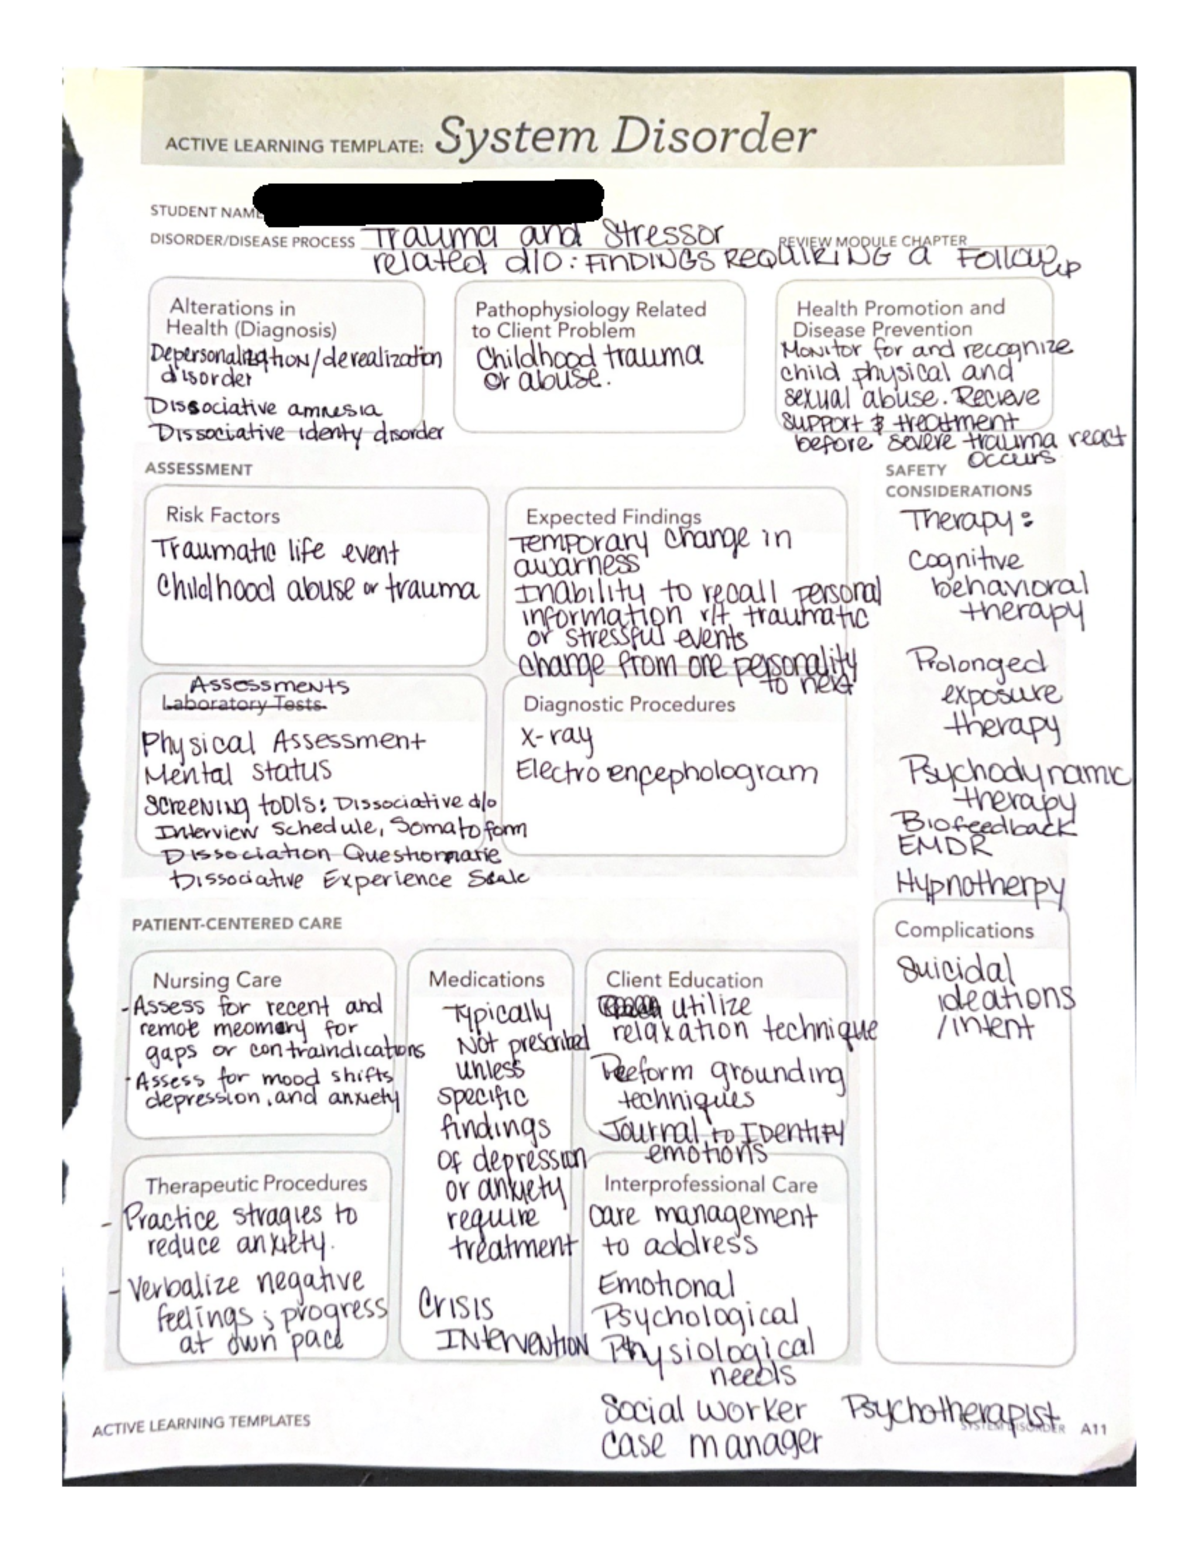 ACTIVE LEARNING TEMPLATE: System Disorder
STUDENT NAME
DISORDER/DISEASE PROCESS Trauma and Stressor
REVIEW MODULE CHAPTER
related d/o: FINDINGS REQUIRING a Followup
Alterations in
Health (Diagnosis)
Depersonalization/derealization
disorder
Dissociative amnesia
Dissociative identy disorder
Pathophysiology Related
to Client Problem
Childhood trauma
or abuse.
Health Promotion and
Disease Prevention
Monitor for and recognize
child physical and
sexual abuse. Recieve
support & treatment
before severe trauma react
occurs
ASSESSMENT
SAFETY
CONSIDERATIONS
Risk Factors
Traumatic life event
Childhood abuse or trauma
Expected Findings
Temporary change in
awarness
Inability to recall personal
information r/t traumatic
or stressful events
change from one personality
to next
Assessments
Laboratory Tests
Physical Assessment
Mental status
Screening tools: Dissociative d/o
Interview Schedule, Somatoform
Dissociation Questionnarie
Dissociative Experience Scale
Diagnostic Procedures
X-ray
Electroencephologram
Therapy:
Cognitive
behavioral
therapy
Prolonged
exposure
therapy
Psychodynamic
therapy
Biofeedback
EMDR
Hypnotherpy
PATIENT-CENTERED CARE
Complications
Suicidal
ideations
/intent
Nursing Care
-Assess for recent and
remote meomory for
gaps or contraindications
-Assess for mood shifts
depression, and anxiety
Medications
Typically
Not prescribed
unless
specific
findings
of depression
or anxiety
require
treatment
Crisis
Intervention
Client Education
utilize
relaxation technique
Peeform grounding
techniques
Journal to Identify
emotions
Therapeutic Procedures
- Practice stragies to
reduce anxiety.
- Verbalize negative
feelings; progress
at own pace
Interprofessional Care
care management
to address
Emotional
Psychological
Physiological
needs
Social worker Psychotherapist
case manager
ACTIVE LEARNING TEMPLATES
SYSTEM DISORDER A11